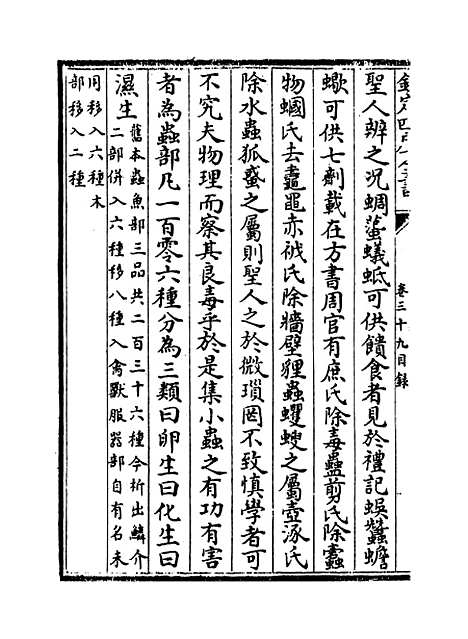 欽定四庫全書
卷三十九目錄
聖人辨之況蜩蝱蟻蚳可供饋食者見於禮記蜈蠶蟾
蠍可供七劑載在方書周官有庶氏除毒蠱剪氏除蠹
物蟈氏去鼃黽赤祓氏除牆壁貍蟲蠼螋之屬壺涿氏
除水蟲狐蜮之屬則聖人之於微瑣罔不致慎學者可
不究夫物理而察其良毒乎於是集小蟲之有功有害
者為蟲部凡一百零六種分為三類曰卵生曰化生曰
濕生舊本蟲魚部三品共二百三十六種今析出鱗介
二部併入六種移八種入禽獸服器部自有名未
用移入六種木
部移入二種